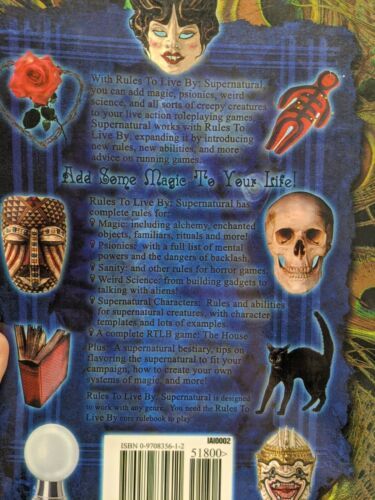 With Rules To Live By: Supernatural,
you can add magic, psionics, weird
science, and all sorts of creepy creatures
to your live action roleplaying games.
Supernatural works with Rules To
Live By, expanding it by introducing
new rules, new abilities, and more
advice on running games.
Add Some Magic To Your Life!
Rules To Live By: Supernatural has
complete rules for:
Magic: including alchemy, enchanted
objects, familiars, rituals and more!
Psionics: with a full list of mental
powers and the dangers of backlash.
Sanity: and other rules for horror games.
Weird Science: from building gadgets to
talking with aliens!
Supernatural Characters: Rules and abilities
for supernatural creatures, with character
templates and lots of examples.
A complete RTLB game: The House
Plus: A supernatural bestiary, tips on
flavoring the supernatural to fit your
campaign, how to create your own
systems of magic, and more!
Rules To Live By: Supernatural is designed
to work with any genre. You need the Rules To
Live By core rulebook to play.
ISBN 0-9708356-1-2
IAI0002
51800>